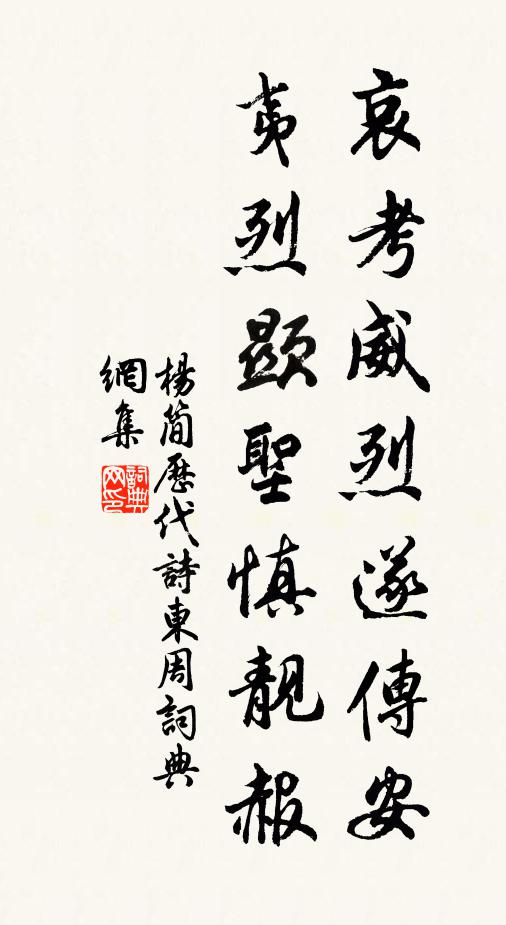 哀考威烈遂傳安
夷烈顯聖慎靚赧
楊簡歷代詩東周詞典
網集
詞典網印